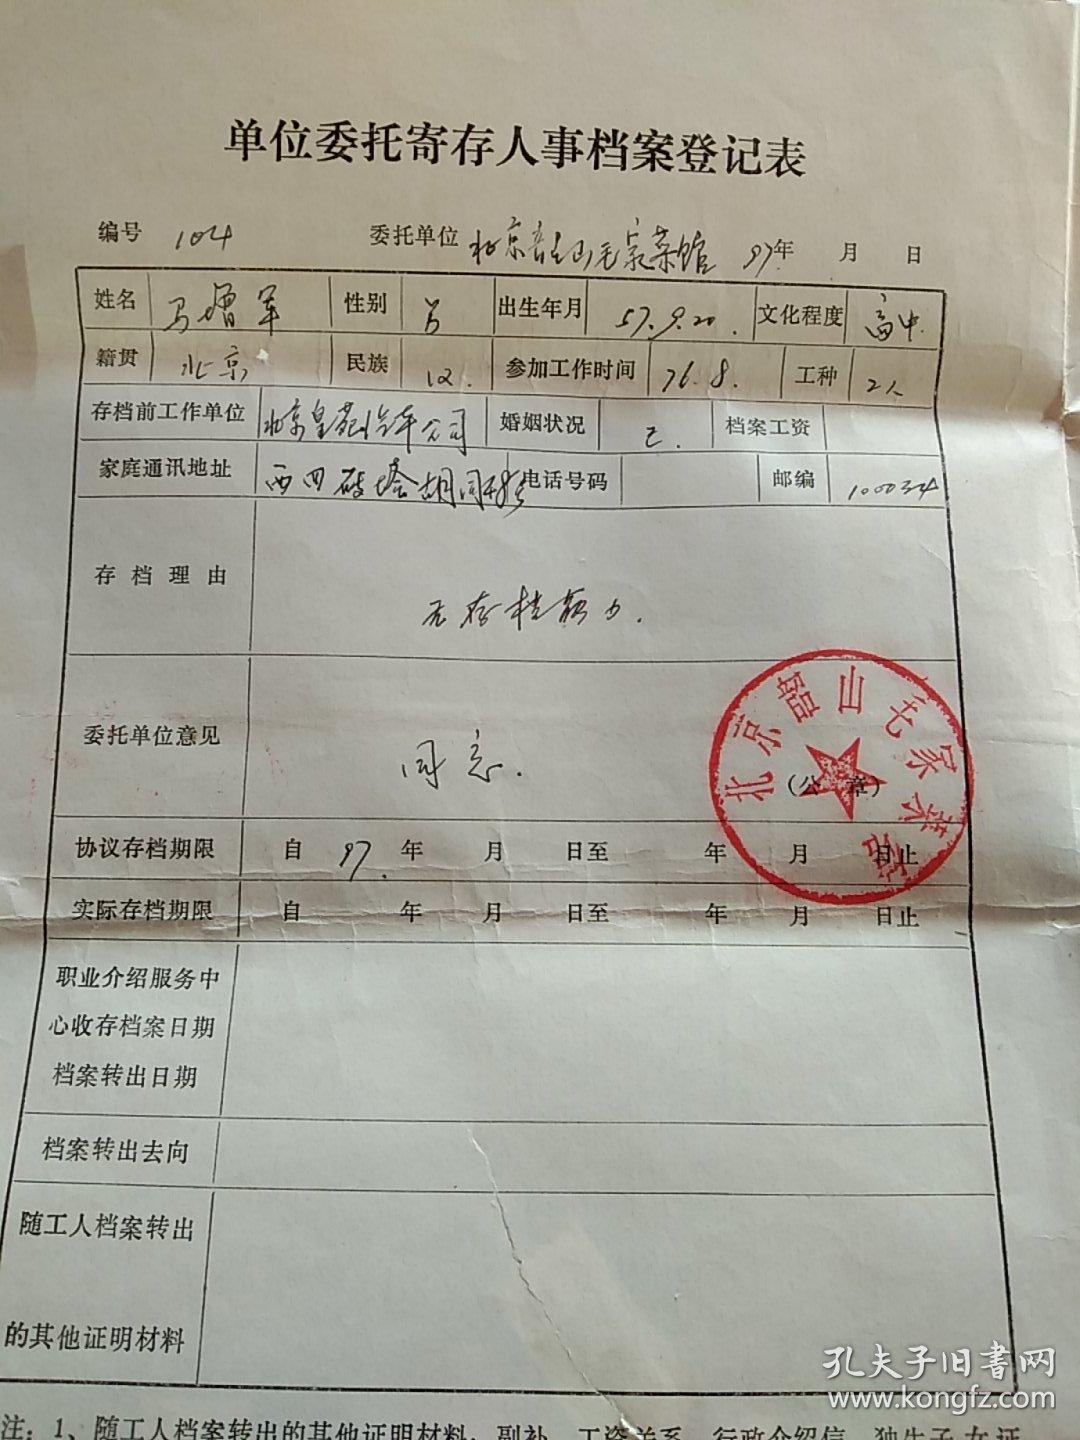 单位委托寄存人事档案登记表
编号 104 委托单位 北京韶山毛家菜馆 97年 月 日
姓名 马增军 性别 男 出生年月 57.9.20. 文化程度 高中.
籍贯 北京 民族 汉. 参加工作时间 76.8. 工种 工人
存档前工作单位 北京皇苑汽车公司 婚姻状况 已. 档案工资
家庭通讯地址 西四砖塔胡同 电话号码 邮编 100034
存档理由 无存档能力.
委托单位意见 同意. (公章)
北京韶山毛家菜馆
协议存档期限 自 97. 年 月 日至 年 月 日止
实际存档期限 自 年 月 日至 年 月 日止
职业介绍服务中
心收存档案日期
档案转出日期
档案转出去向
随工人档案转出
的其他证明材料
孔夫子旧书网
www.kongfz.com
注：1、随工人档案转出的其他证明材料：副补、工资关系、行政介绍信、独生子女证